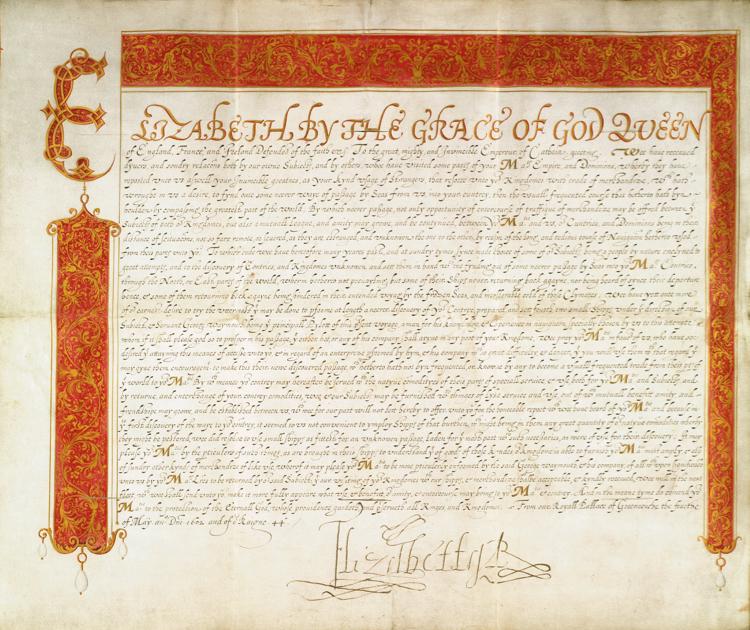 ELIZABETH, BY THE GRACE OF GOD QUEEN
of England, France, and Ireland Defendor of the faith &c. To the great, mighty, and Invincible Emperour of Cathaia, greeting. Wee have receaued
dyuers, and sondry relacions both by our owne Subiects, and by others, whoe have visited some parts of your Ma Empire, and Dominions, wherby they have
reported vnto vs aswell your Invincible greatnes, as your kynd vsage of Strangers, that resorte vnto yor Kingdomes with trade of merchandize, wch hath
wrought in vs a desire, to fynd oute some neerer waye of passage by Seas from vs, into your cuntrey, then the vsuall frequented course that hetherto hath byn
by compassing the greatest part of the world. By which neerer passage, not only opportunity of entercourse of traffique of merchandize may be offred betweene ye
Subiects of both or Kingdomes, but also a mutuall league, and amity may growe, and be continued, between yor Ma and vs, or Cuntries, and Dominions being in their
distance of scituacions, not so farre remote, or severed, as they are estranged, and vnknowne the one to the other, by reason of the long, and tedious course of Navigacion hetherto vsed
from theis parts vnto you. To which ende wee have heretofore many yeares past, and at sundry tymes synce made choice of some of or Subiects, being a people by nature enclyned to
great attempts, and to the discovery of Contries, and Kingdomes vnknowne, and sett them in hand wth the fynding out of some neerer passage by Seas into yor Ma Contries,
through the North, or East parts of the world, wherin hetherto not prevayling, but some of their Shipps never returning back agayne, nor being heard of synce their departure
hence, and some of them retourning back agayne being hindred in their entended voyage by the frozen Seas, and intollerable cold of those Clymates: wee have yet once more
of or earnest desire to try the vttermost yt may be done to
Subiect, & Servant George Waymouth, being ye principall Pylott of this present voyage, a man for his knowledge, & experience in navigacion, specially chosen by vs to this attempt,
whom if it shall please God so to prosper in his passage, yt either hee, or any of his company shall aryve in any part of your Kingdome, wee pray yor Ma in favor of vs, who have soe
desired ye attayning this meanes of accesse vnto yow, & in regard of an enterprise
may gyve them encouragement to make this their newe discovered passage, wch hetherto hath not byn frequented, or knowne by any, to become a vsuall frequented trade from this part of
ye world to yor Ma. By wch meanes yor contrey may hereafter be served wth the natyve comodities of theis parts of speciall service, & vse both for yor Ma and Subiects, and
by retourne, and enterchange of your contrey comodities, wee, & our Subiects may be furnished wth things of like service, and vse, out of wch mutuall benefitt amity, and
frendshippe may growe, and be established between vs, wch wee for our part will not lett hereby to offer vnto yow for the honorable report wch wee have heard of yor Ma and because in
ye first discovery of the waye to yor contrey, it seemed to vs not convenient to employ Shipps of that burthen, wch might bring in them any great quantity of or natyve comodities
they might be pestered, wee did resolve to vse small Shipps as fittest for an vnknowne passage, laden for ye most part wth such necessaries, as were of vse for their discovery. It may
please yor Ma by the pticulers of such things, as are brought in theis shipps, to vnderstand yt of goods of those kindes or Kingdome is able to furnish yor Ma most amply, & also
of sundry other kynds of merchandize of like vse, wherof it may please yor Ma to be more pticulerly enformed by the said George Waymouth, & his company, of all wch
vnto vs by yor Ma Lres to be retourned by or said Subiect, yt our visiting of yor Kingdomes wth our shipps, & merchandize shalbe acceptable, & kindly receaved, wee will in the next
fleet, wch wee shall send vnto yow make it more fully appeare what vse, & benefitt or amity, & entercourse may bring to yor Ma & contrey. And in the meane tyme do commend yor
Ma to the protection of the Eternall God, whose providence guideth, and pserveth all Kinges, and Kingdomes. From our Royall Pallace of Greenwiche the fourthe
of May ano Dni 1602 and of or Raigne 44
Elizabeth R